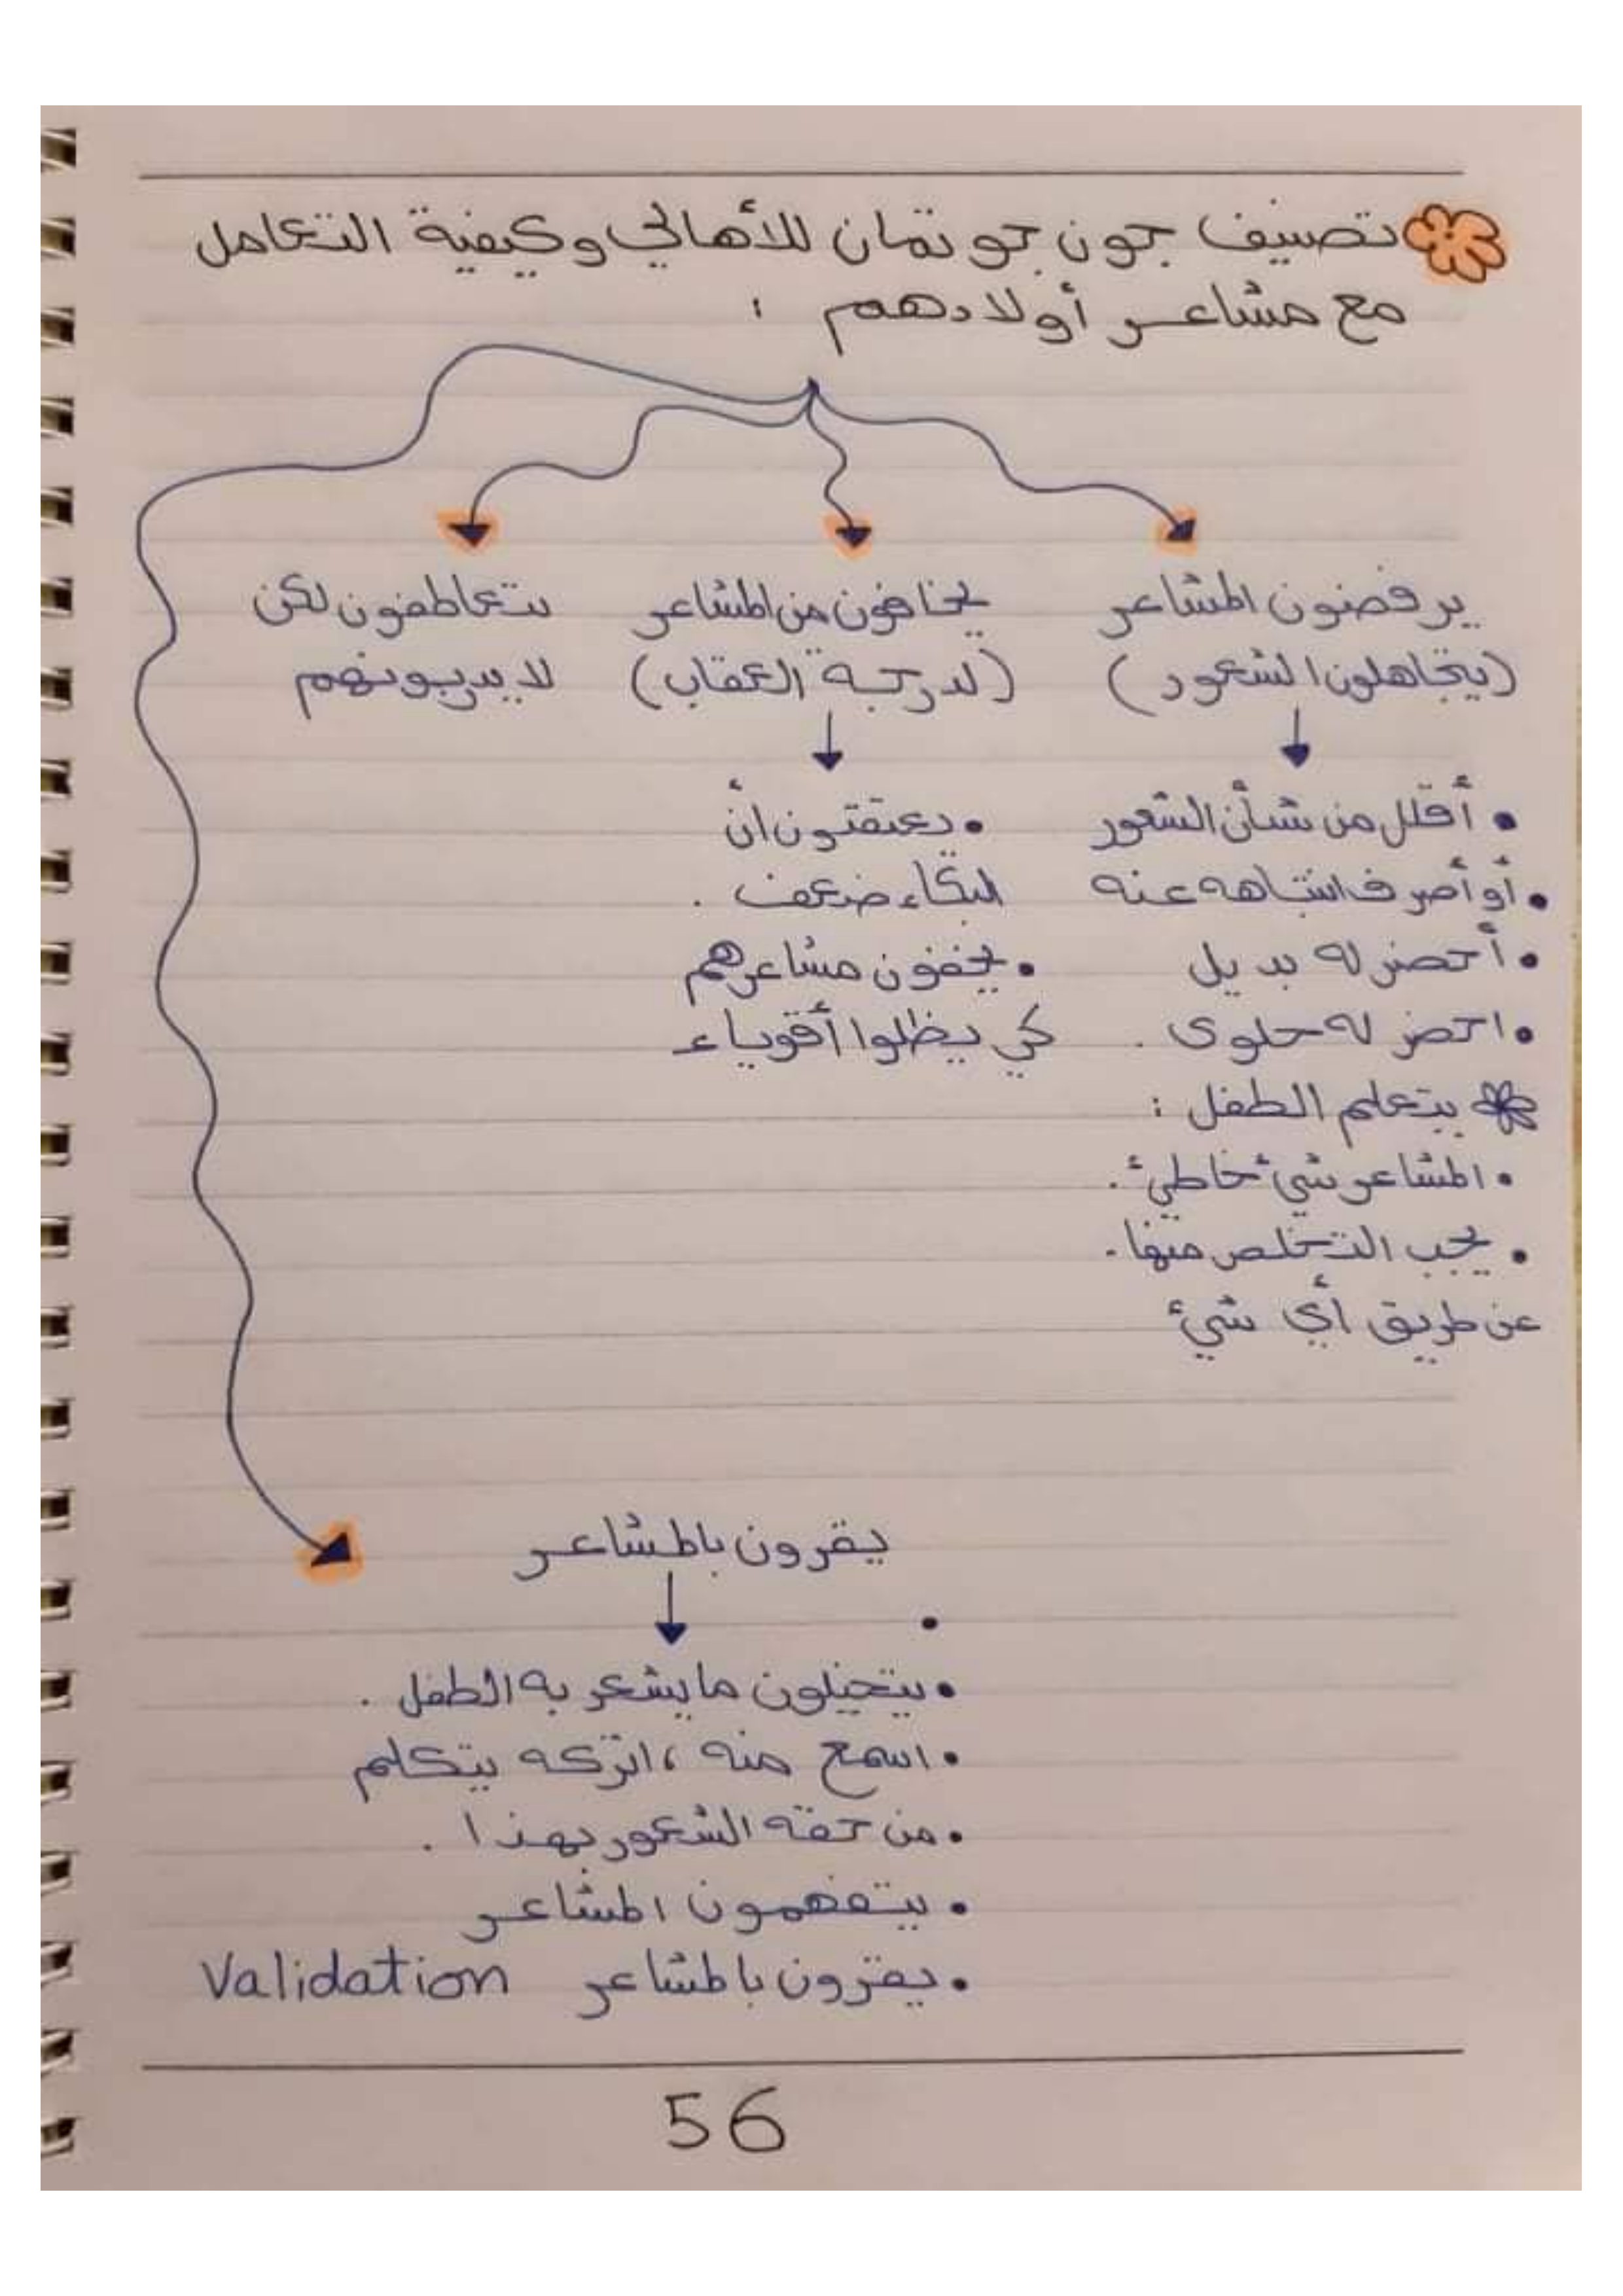 تصنيف جون جوتمان للأهالي وكيفية التعامل
مع مشاعر أولادهم :
يرفضون المشاعر
(يتجاهلون الشعور)
• أقلل من شأن الشعور
• أو أصرف انتباهه عنه
• أحضر له بديل
• احضر له حلوى .
يتعلم الطفل :
• المشاعر شيئ خاطئ .
• يجب التخلص منها .
عن طريق أي شيئ
يخافون من المشاعر
(لدرجة العقاب)
• يعتقدون ان
البكاء ضعف .
• يخفون مشاعرهم
كي يظلوا أقوياء
يتعاطفون لكن
لا يدربونهم
يقرون بالمشاعر
•
• يتخيلون ما يشعر به الطفل .
• اسمع منه ، اتركه يتكلم
• من حقه الشعور بهذا .
• يتفهمون المشاعر
• يقرون بالمشاعر Validation
56